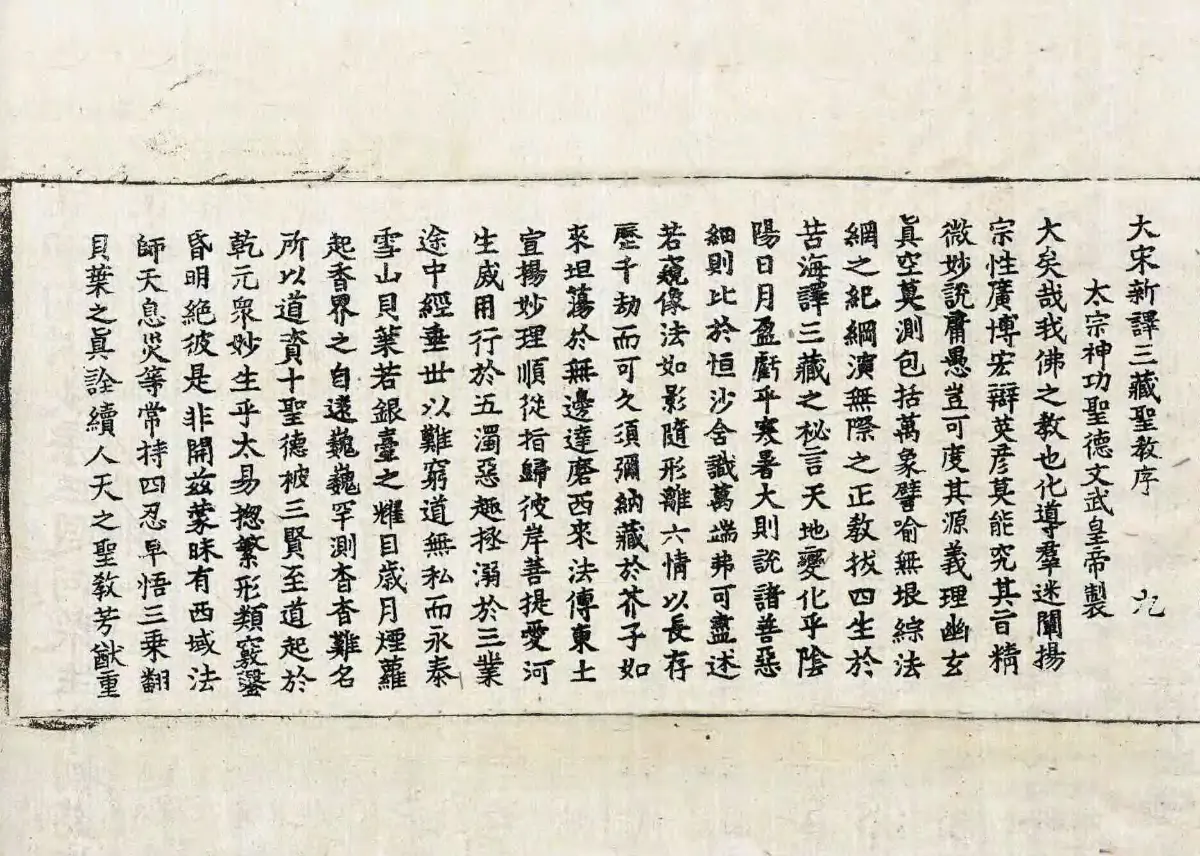 大宋新譯三藏聖教序 九
太宗神功聖德文武皇帝製
大矣哉我佛之教也化導羣迷闡揚
宗性廣博宏辯英彥莫能究其旨精
微妙說庸愚豈可度其源義理幽玄
眞空莫測包括萬象譬喻無垠綜法
網之紀綱演無際之正教拔四生於
苦海譯三藏之秘言天地變化乎陰
陽日月盈虧乎寒暑大則說諸善惡
細則比於恒沙含識萬端弗可盡述
若窺像法如影隨形離六情以長存
歷千劫而可久須彌納藏於芥子如
來坦蕩於無邊達磨西來法傳東土
宣揚妙理順從指歸彼岸菩提愛河
生威用行於五濁惡趣拯溺於三業
途中經垂丗以難窮道無私而永泰
雪山貝葉若銀臺之耀目歲月煙蘿
起香界之自遠巍巍罕測杳杳難名
所以道資十聖德被三賢至道起於
乾元衆妙生乎太易揔繁形類竅鑿
昏明絕彼是非開兹蒙昧有西域法
師天息災等常持四忍早悟三乘翻
貝葉之眞詮續人天之聖教芳猷重